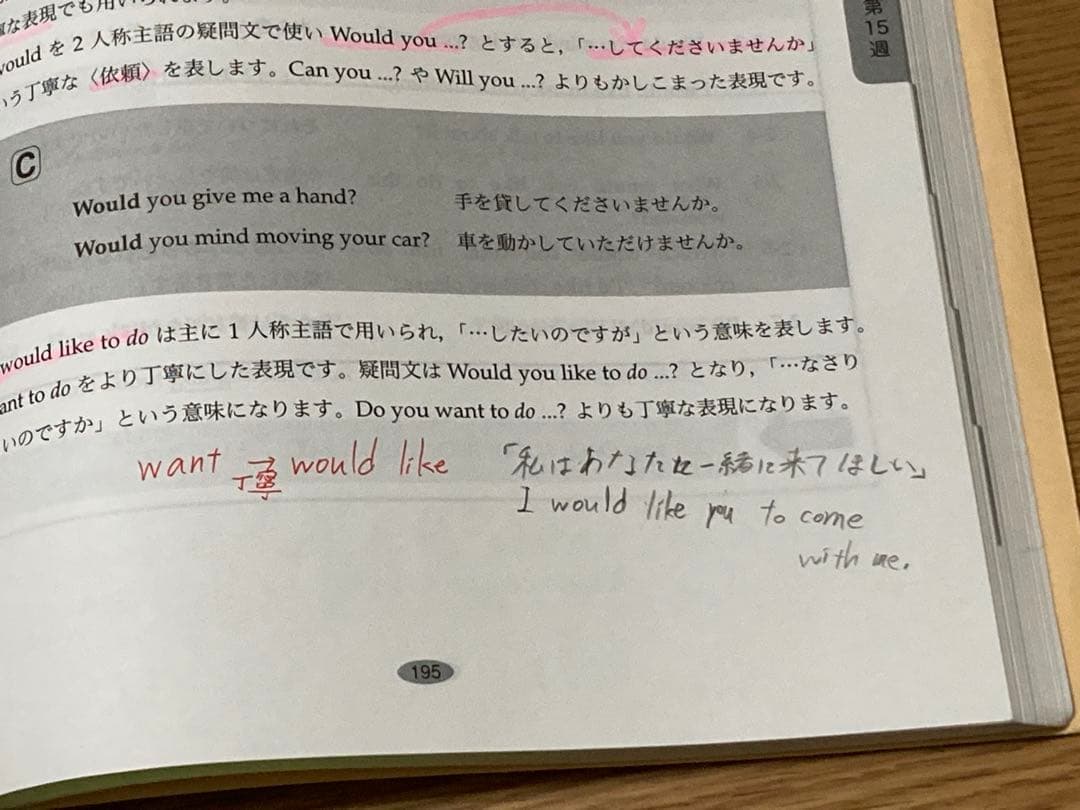 な表現でも用いられます。
would を 2 人称主語の疑問文で使い Would you ...? とすると,「…してくださいませんか」
いう丁寧な〈依頼〉を表します。Can you ...? や Will you ...? よりもかしこまった表現です。
第15週
C
Would you give me a hand? 手を貸してくださいませんか。
Would you mind moving your car? 車を動かしていただけませんか。
would like to do は主に 1 人称主語で用いられ,「…したいのですが」という意味を表します。
ant to do をより丁寧にした表現です。疑問文は Would you like to do ...? となり,「…なさり
いのですか」という意味になります。Do you want to do ...? よりも丁寧な表現になります。
want → would like
丁寧
「私はあなたと一緒に来てほしい」
I would like you to come
with me.
195